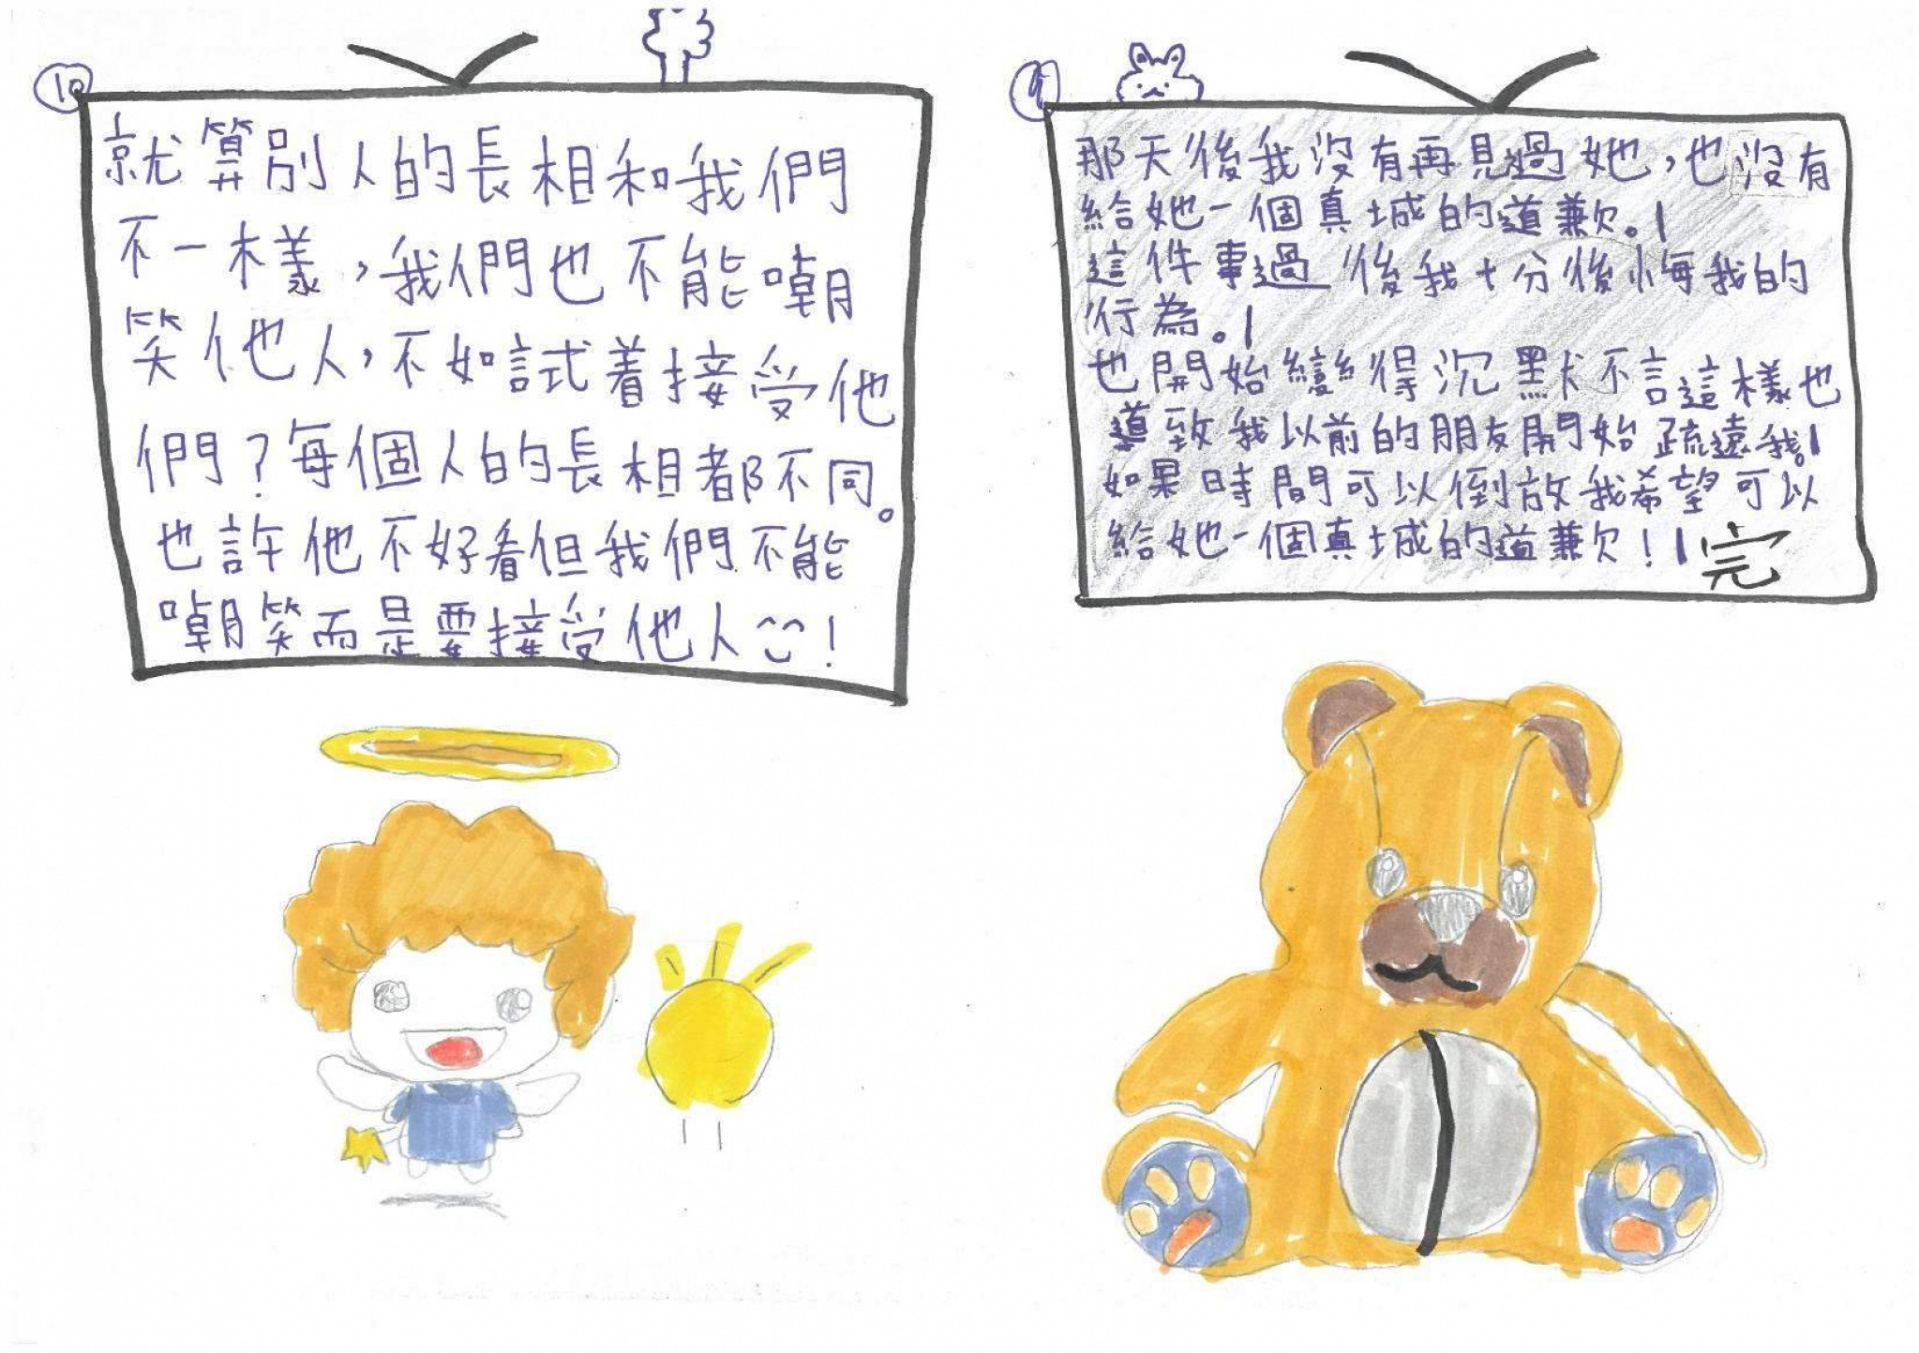 9
那天後我沒有再見過她，也沒有
給她一個真城的道歉。
這件事過後我十分後悔我的
行為。
也開始變得沉默不言這樣也
導致我以前的朋友開始疏遠我。
如果時間可以倒放我希望可以
給她一個真城的道歉！完
10
就算別人的長相和我們
不一樣，我們也不能嘲
笑他人，不如試着接受他
們？每個人的長相都不同。
也許他不好看但我們不能
嘲笑而是要接受他人！